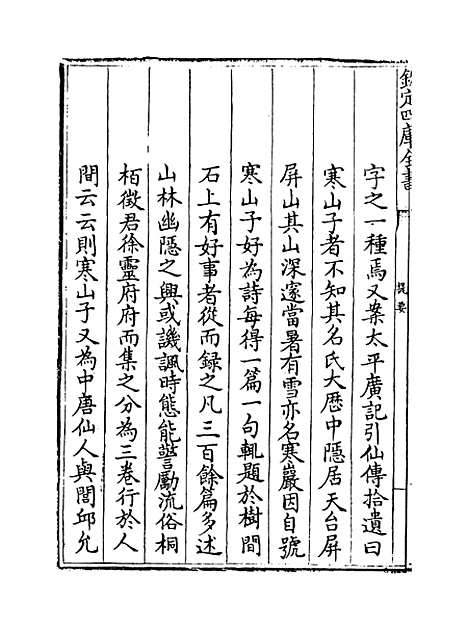 欽定四庫全書
提要
字之一種焉又案太平廣記引仙傳拾遺曰
寒山子者不知其名氏大歴中隱居天台屏
屏山其山深邃當暑有雪亦名寒巖因自號
寒山子好為詩每得一篇一句輒題於樹間
石上有好事者從而録之凡三百餘篇多述
山林幽隱之興或譏諷時態能警勵流俗桐
栢徵君徐靈府府而集之分為三卷行於人
間云云則寒山子又為中唐仙人與閭邱允